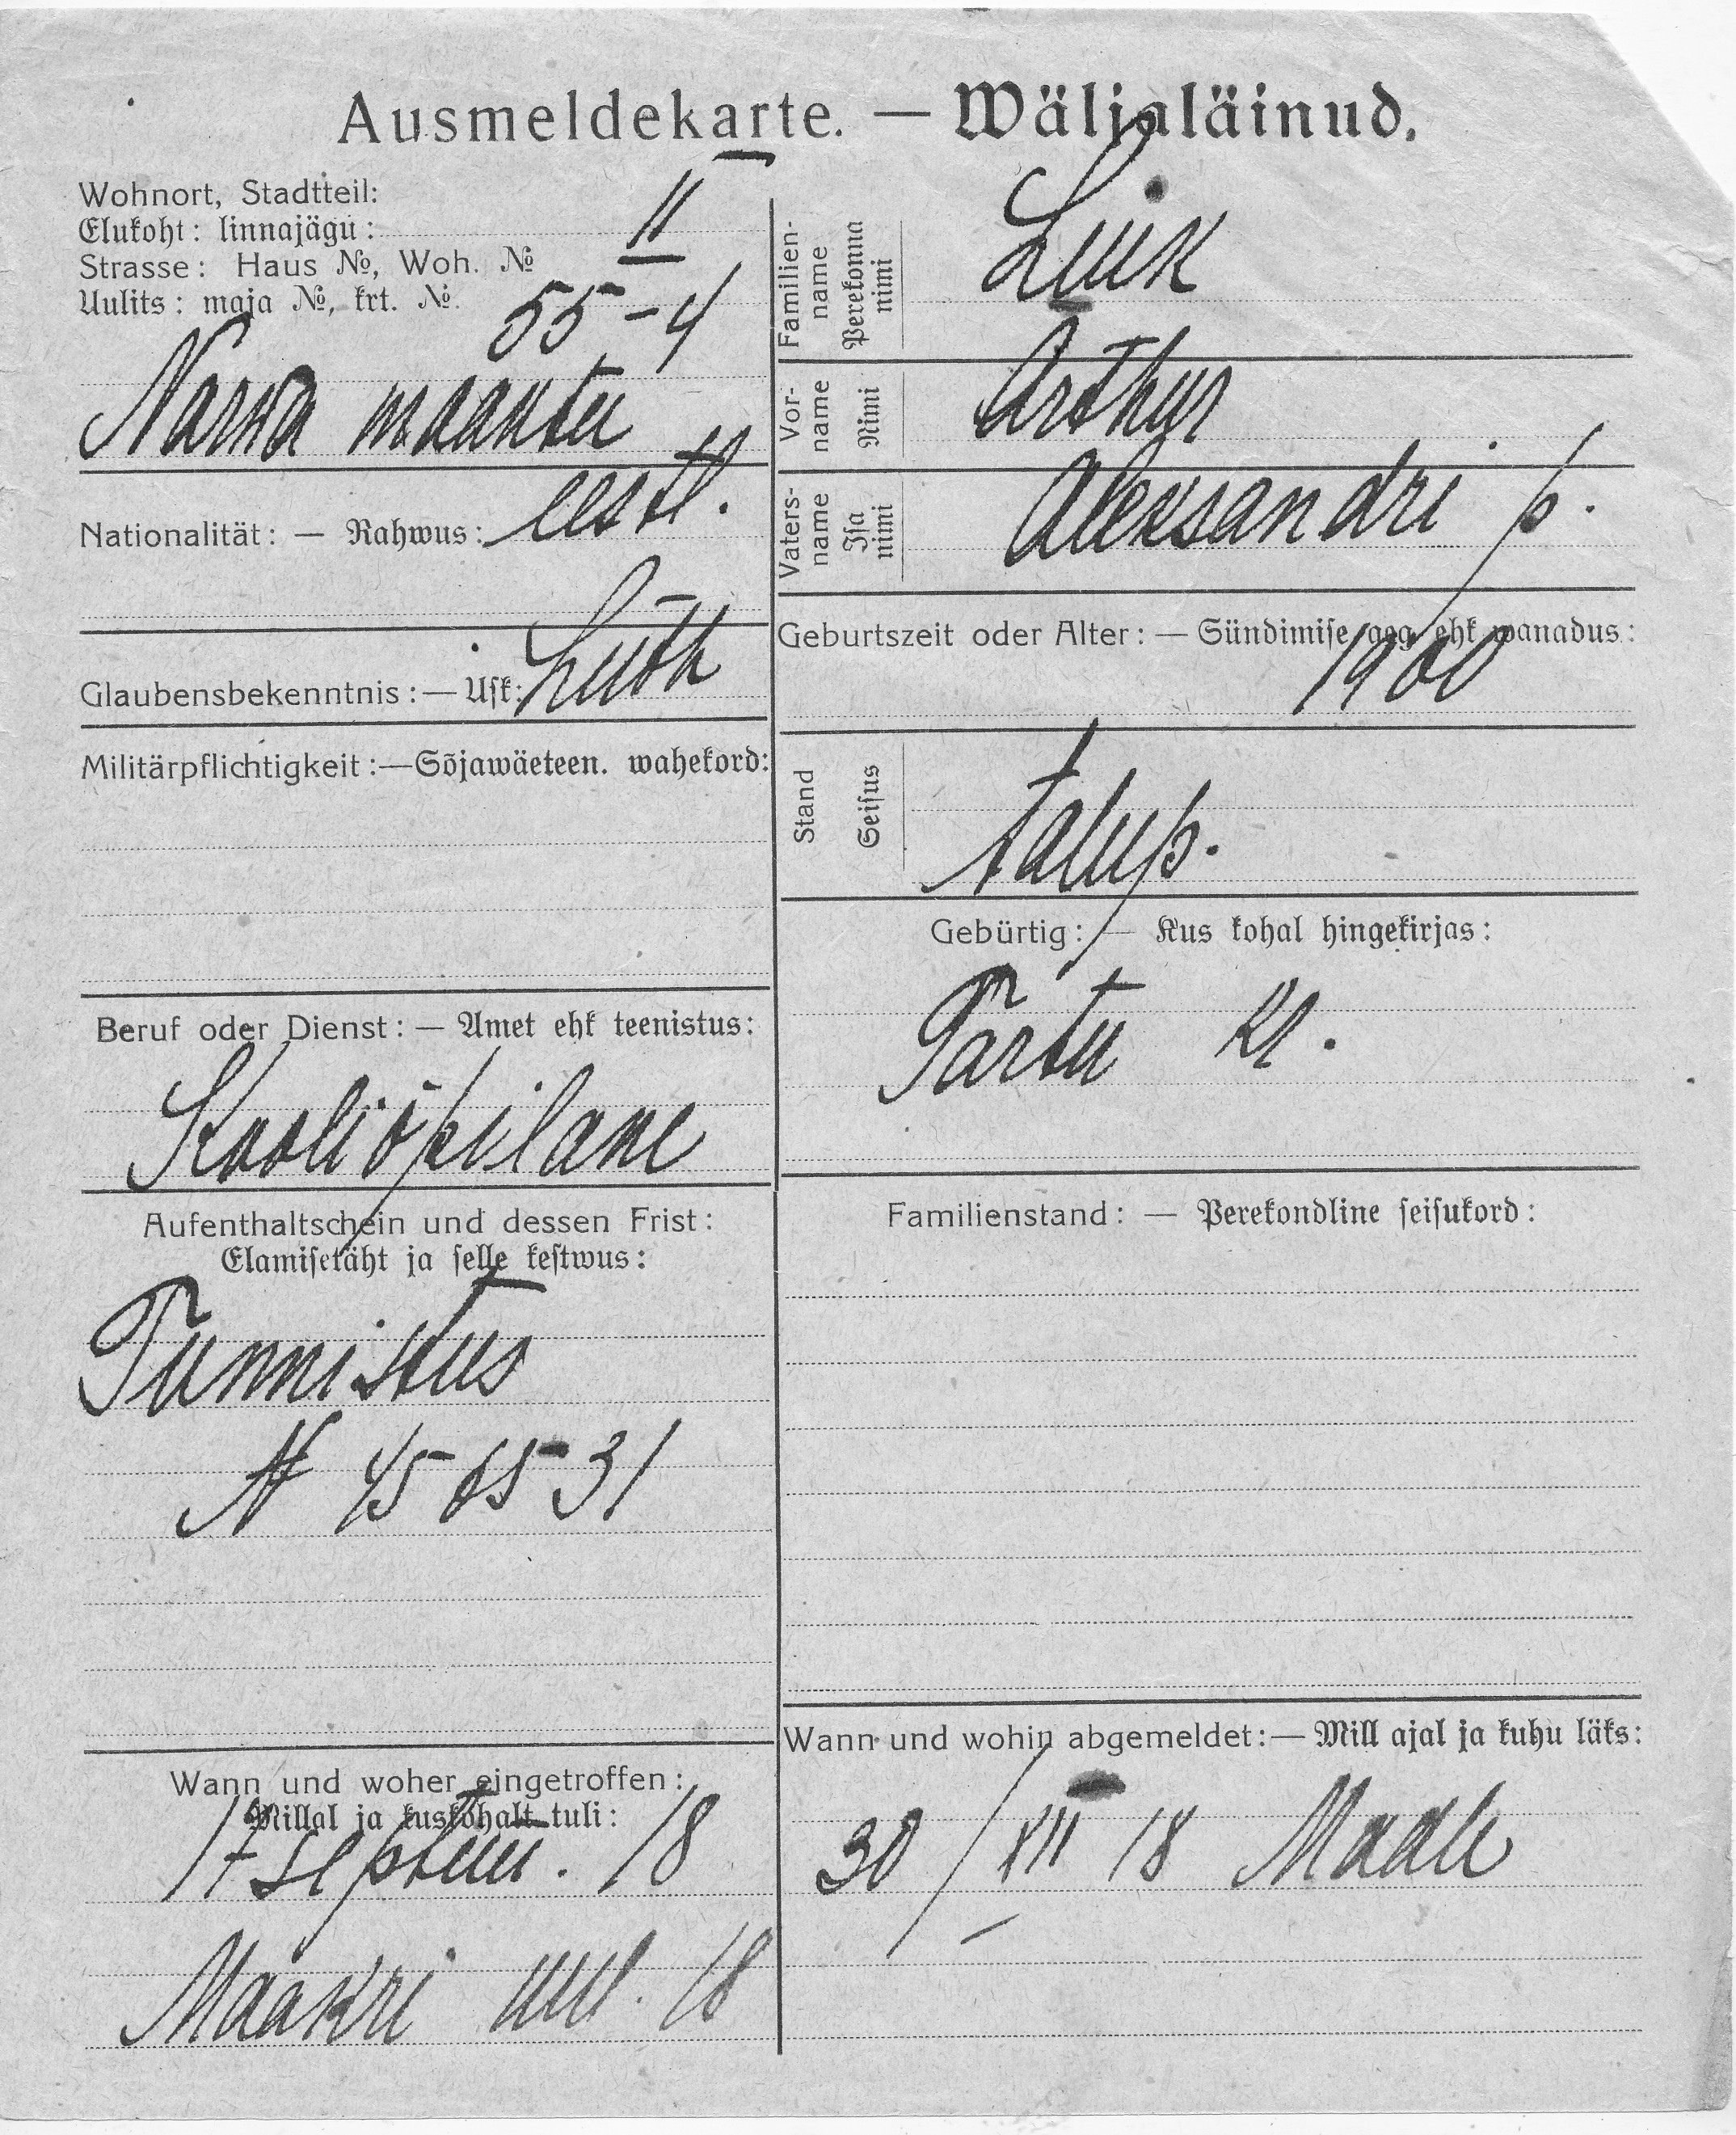 Ausmeldekarte. — Wäljaläinud.
Wohnort, Stadtteil:
Elukoht: linnajägu: II
Strasse: Haus №, Woh. №
Uulits: maja №, krt. №. 55-4
Narwa maantee
Nationalität: — Rahwus: eestl.
Glaubensbekenntnis: — Usk: Luth
Militärpflichtigkeit: — Sõjawäeteen. wahekord:
Beruf oder Dienst: — Amet ehk teenistus:
Kooliõpilane
Aufenthaltschein und dessen Frist:
Elamisetäht ja selle kestwus:
Tunnistus
N 45 65 31
Wann und woher eingetroffen:
Millal ja kuskohalt tuli:
17 septem. 18
Maakri uul. 18
Familien-
name
Perekonna
nimi
Luik
Vor-
name
Nimi
Arthur
Vaters-
name
Isa
nimi
Aleksandri p.
Geburtszeit oder Alter: — Sündimise aeg ehk wanadus:
1900
Stand
Seisus
talup.
Gebürtig: — Kus kohal hingekirjas:
Tartu kr.
Familienstand: — Perekondline seisukord:
Wann und wohin abgemeldet: — Mill ajal ja kuhu läks:
30/XII 18 Maale